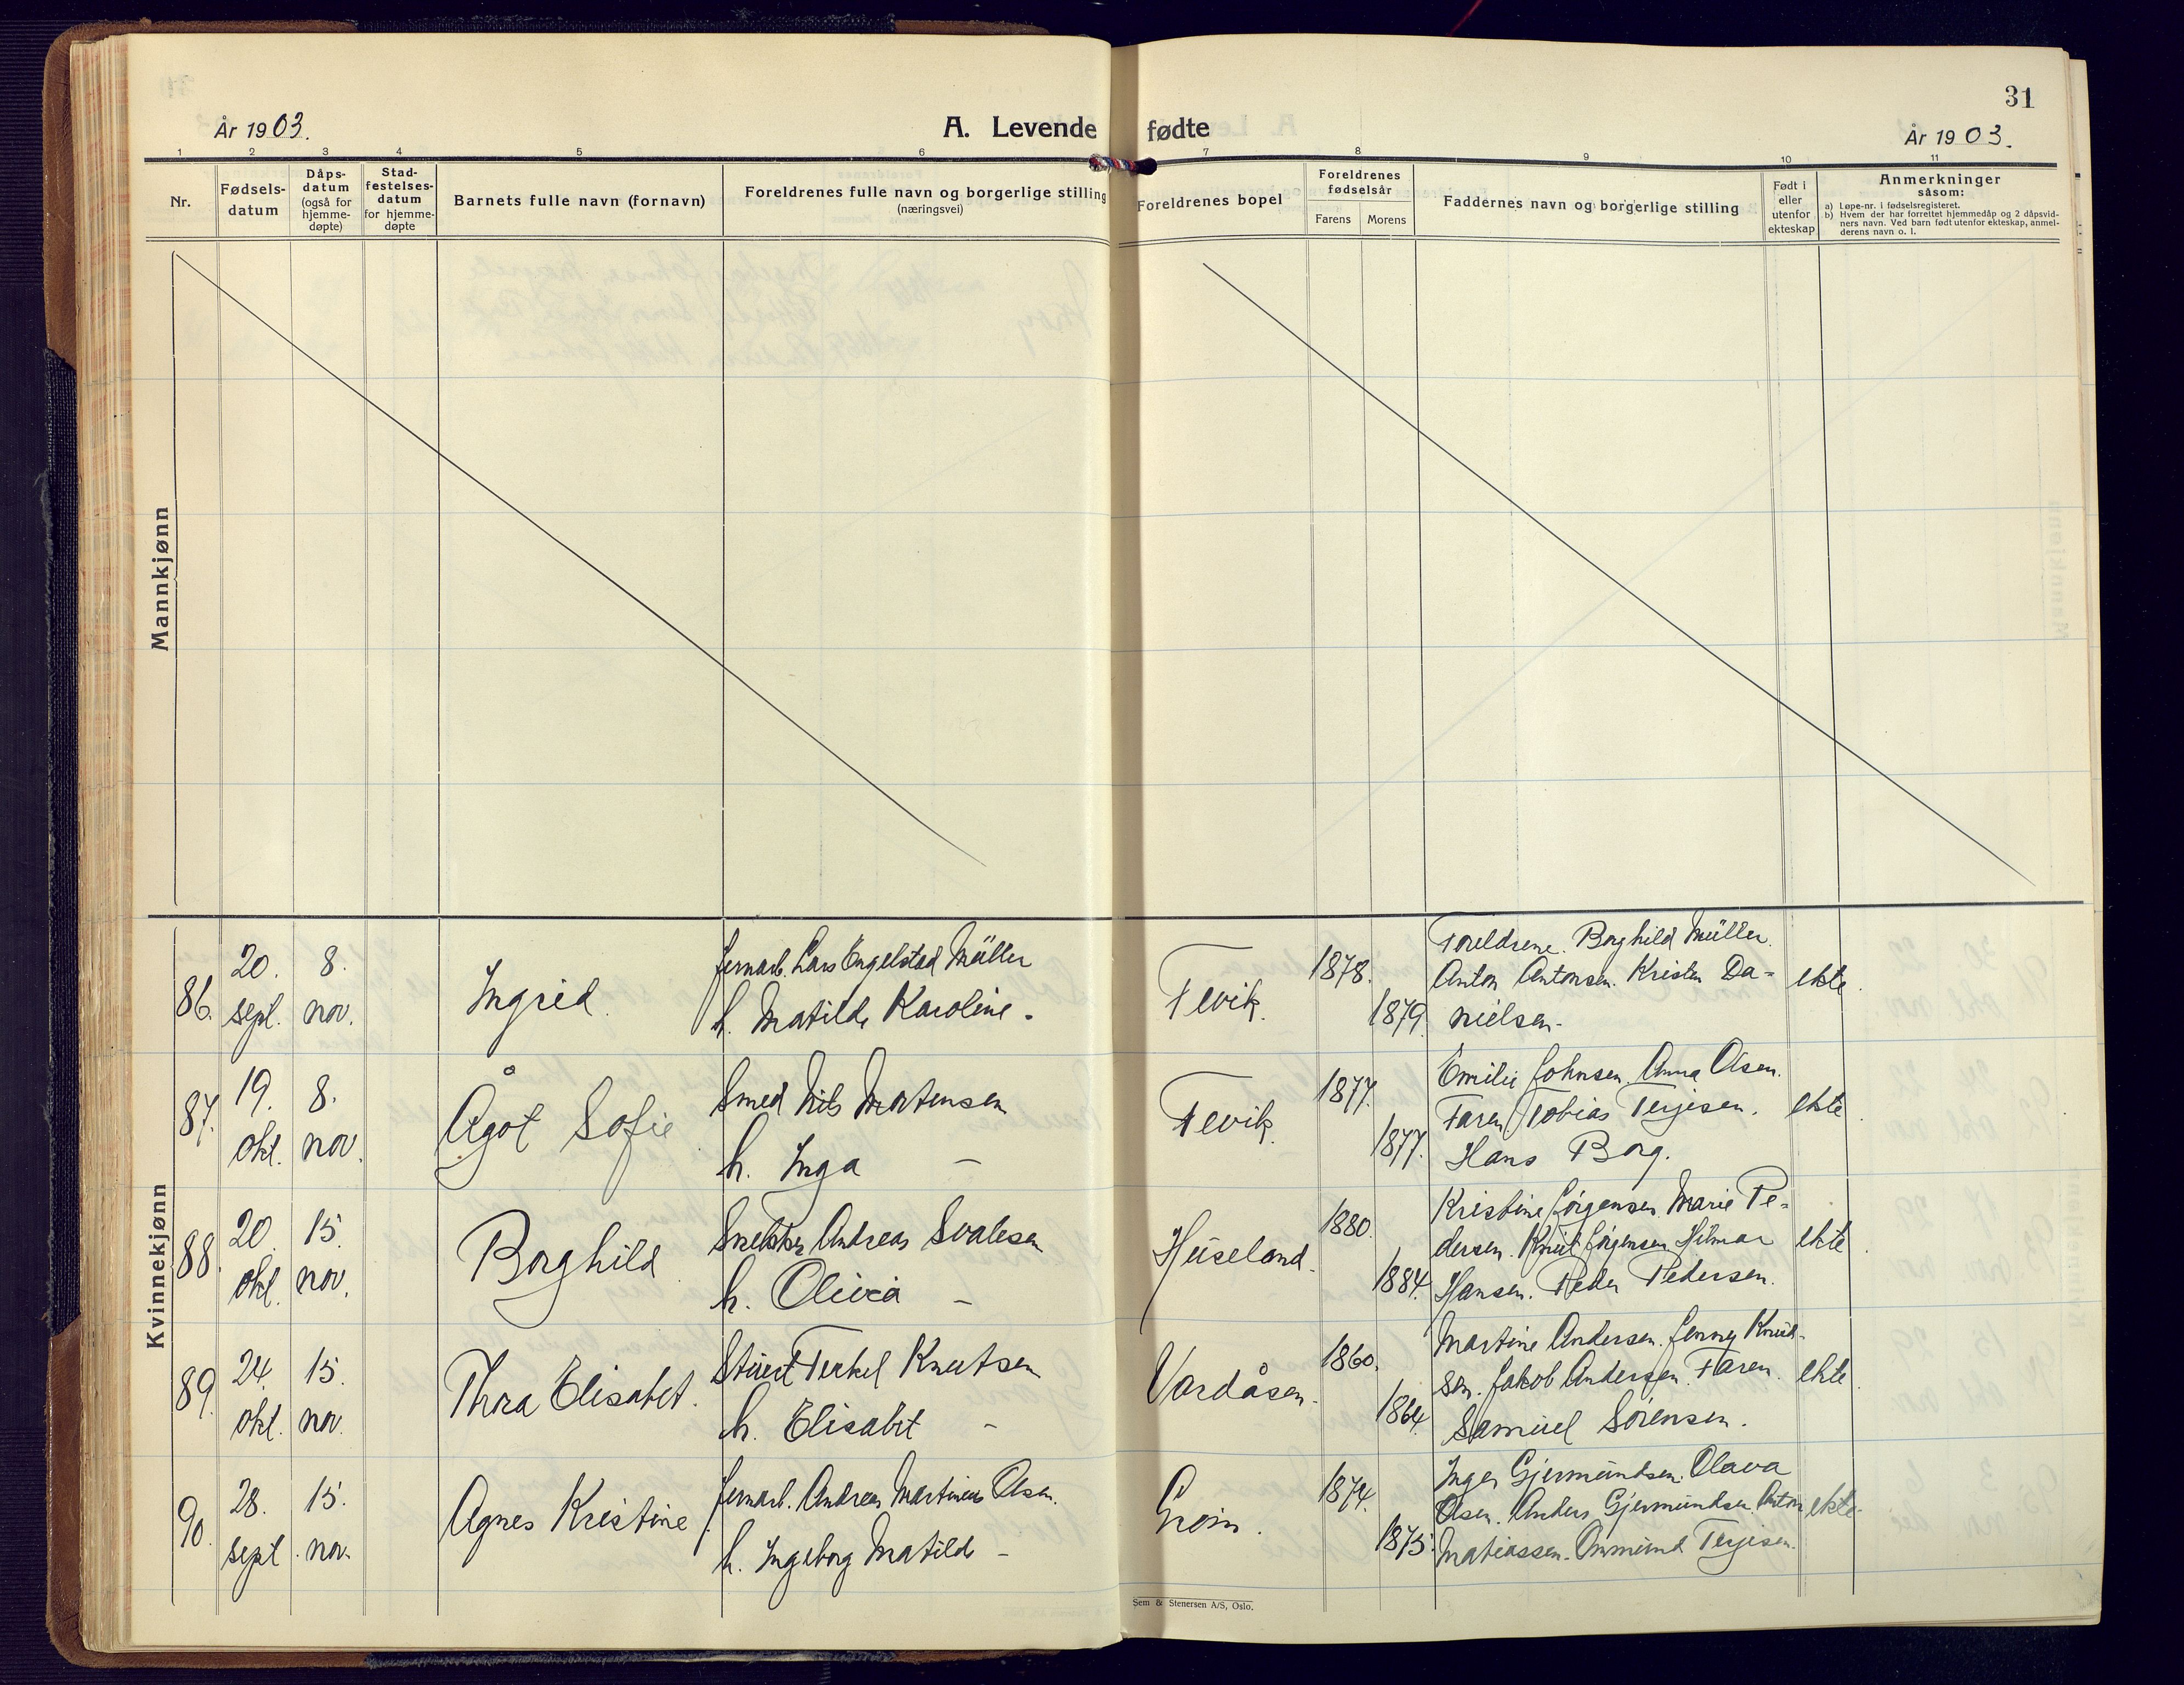 31
År 1903.
A. Levende fødte
År 1903.
1 2 3 4 5 6 7 8 9 10 11
Nr.
Fødsels-
datum
Dåps-
datum
(også for
hjemme-
døpte)
Stad-
festelses-
datum
for hjemme-
døpte
Barnets fulle navn (fornavn)
Foreldrenes fulle navn og borgerlige stilling
(næringsvei)
Foreldrenes bopel
Foreldrenes
fødselsår
Farens Morens
Faddernes navn og borgerlige stilling
Født i
eller
utenfor
ekteskap
Anmerkninger
såsom:
a) Løpe-nr. i fødselsregisteret.
b) Hvem der har forrettet hjemmedåp og 2 dåpsvid-
ners navn. Ved barn født utenfor ekteskap, anmel-
derens navn o. l.
Mannkjønn
Kvinnekjønn
86.
20.
sept.
8.
nov.
Ingrid.
Jernarb. Lars Engelstad Müller
h. Matilde Karoline -
Fevik.
1878.
1879.
Foreldrene. Borghild Müller.
Anton Antonsen. Kristen Da-
nielsen.
ekte.
87.
19.
okt.
8.
nov.
Ågot Sofie
Smed Nils Mortensen
h. Inga -
Fevik.
1877.
1877.
Emilie Johnsen. Anna Olsen.
Faren Tobias Terjesen.
Hans Borg.
ekte.
88.
20.
okt.
15.
nov.
Borghild
Snekker Andreas Svalesen
h. Olivia -
Huseland.
1880.
1884.
Kristine Jørgensen. Marie Pe-
dersen. Knut Jørgensen Hilmar
Hansen. Peder Pedersen.
ekte.
89.
24.
okt.
15.
nov.
Thora Elisabet.
Stuert Terkel Knutsen
h. Elisabet -
Vardåsen.
1860.
1864.
Martine Andersen. Jenny Knud-
sen. Jakob Andersen. Faren.
Samuel Sørensen.
ekte.
90.
28.
sept.
15.
nov.
Agnes Kristine
Jernarb. Andreas Martinius Olsen.
h. Ingeborg Matilde -
Grøm.
1874.
1875.
Inger Gjermundsen. Olava
Olsen. Anders Gjermundsen. Anton
Matiassen. Ommund Terjesen.
ekte.
Sem & Stenersen A/S, Oslo.